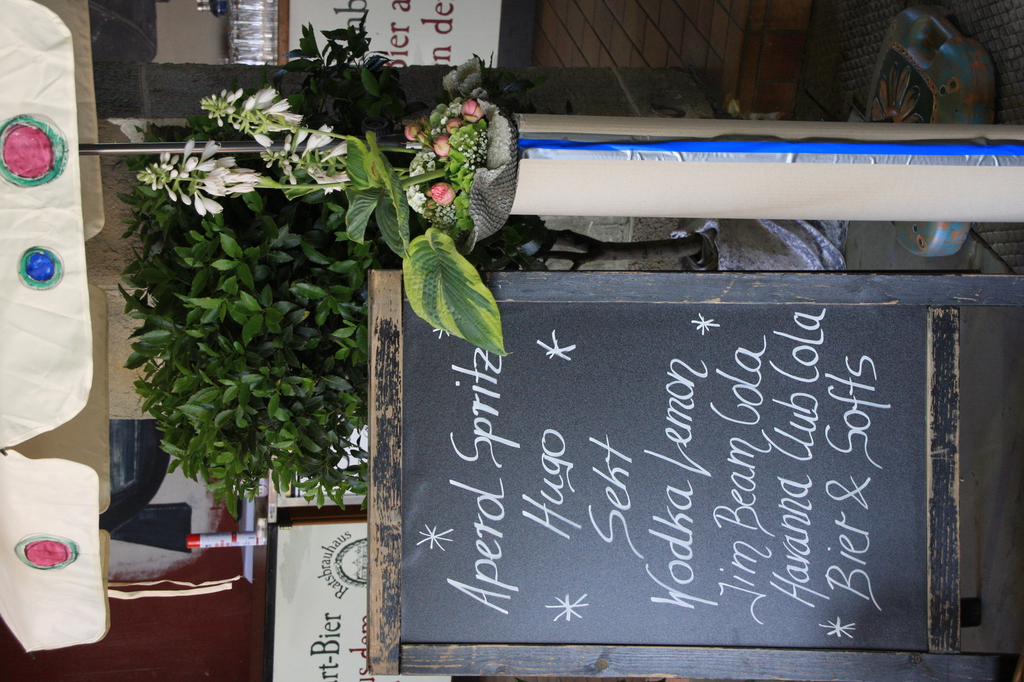 Aperol Spritz
Hugo
Sekt
Wodka Lemon
Jim Beam Cola
Havanna Club Cola
Bier & Softs
Ratsbrauhaus
rt-Bier
us dem
Bier a
n de